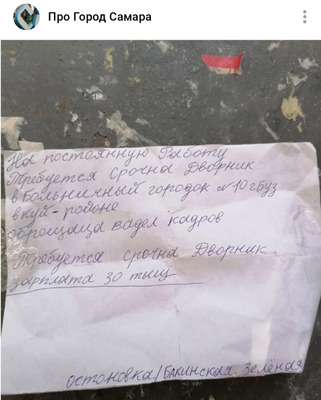 Про Город Самара
На постоянную Работу
Требуется Срочна Дворник
в Больничный городок №10 гбуз
вкуй-районе
оброщаца вадел кадров
Требуется срочна Дворник
зарплата 30 тыщ
остоновка/Бакинская. Зелёная